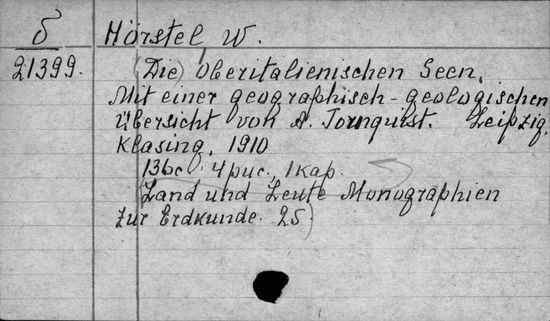 δ Hörstel W.
21399. (Die) Oberitalienischen Seen.
Mit einer geographisch-geologischen
Übersicht von A. Tornquist. Leipzig,
Klasing, 1910
136с. 4 рис., 1 кар.
(Land und Leute Monographien
zur Erdkunde. 25)